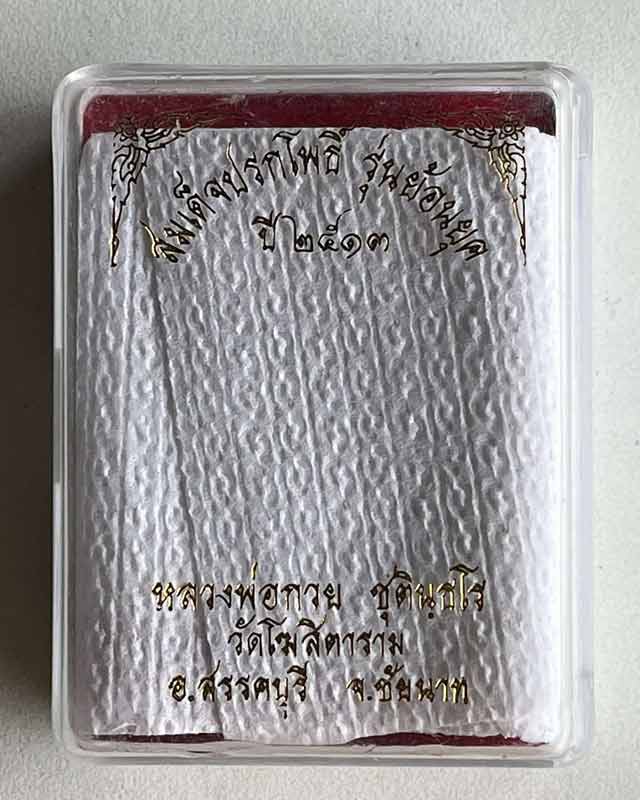 สมเด็จปรกโพธิ์ รุ่นย้อนยุค
ปี ๒๕๑๓
หลวงพ่อกวย ชุตินฺธโร
วัดโฆสิตาราม
อ.สรรคบุรี จ.ชัยนาท